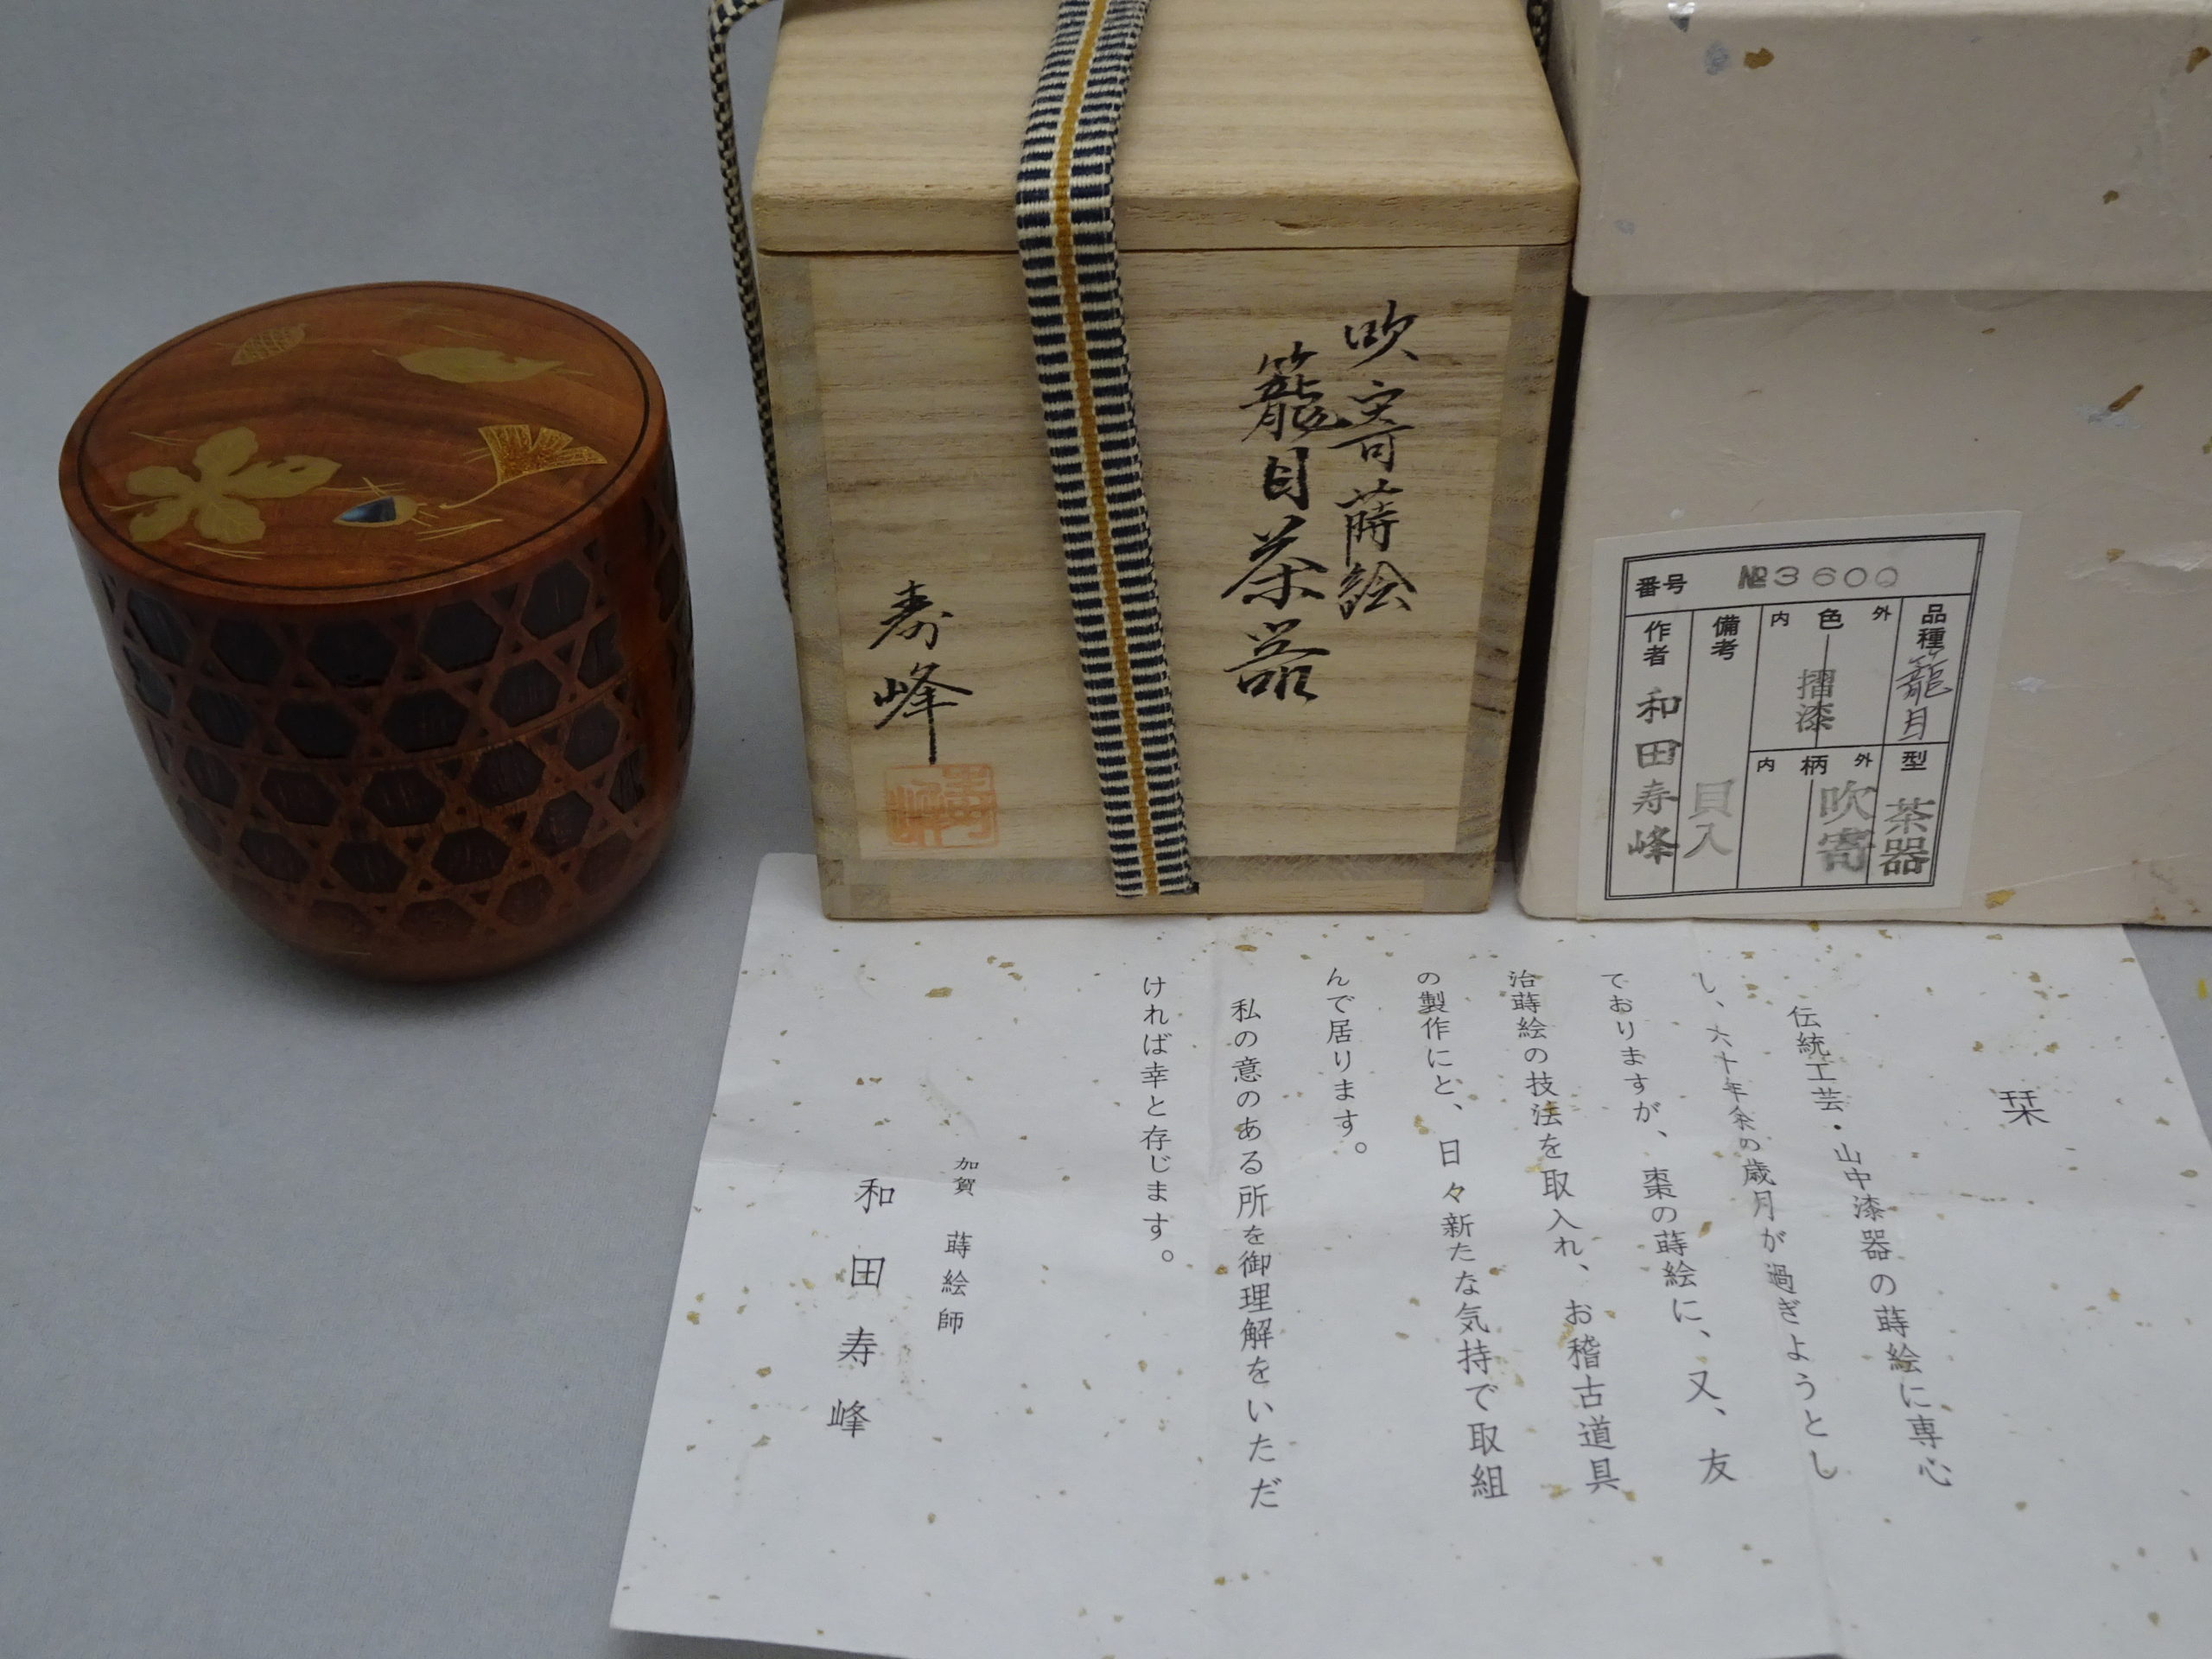 吹寄蒔絵
籠目茶器
寿峰
番号 №3600
品種 籠目
型 茶器
外 色 内
摺漆
外 柄 内
吹寄
備考 貝入
作者 和田寿峰
栞
伝統工芸・山中漆器の蒔絵に専心
し、六十年余の歳月が過ぎようとし
ておりますが、棗の蒔絵に、又、友
治蒔絵の技法を取入れ、お稽古道具
の製作にと、日々新たな気持で取組
んで居ります。
私の意のある所を御理解をいただ
ければ幸と存じます。
加賀 蒔絵師
和田寿峰